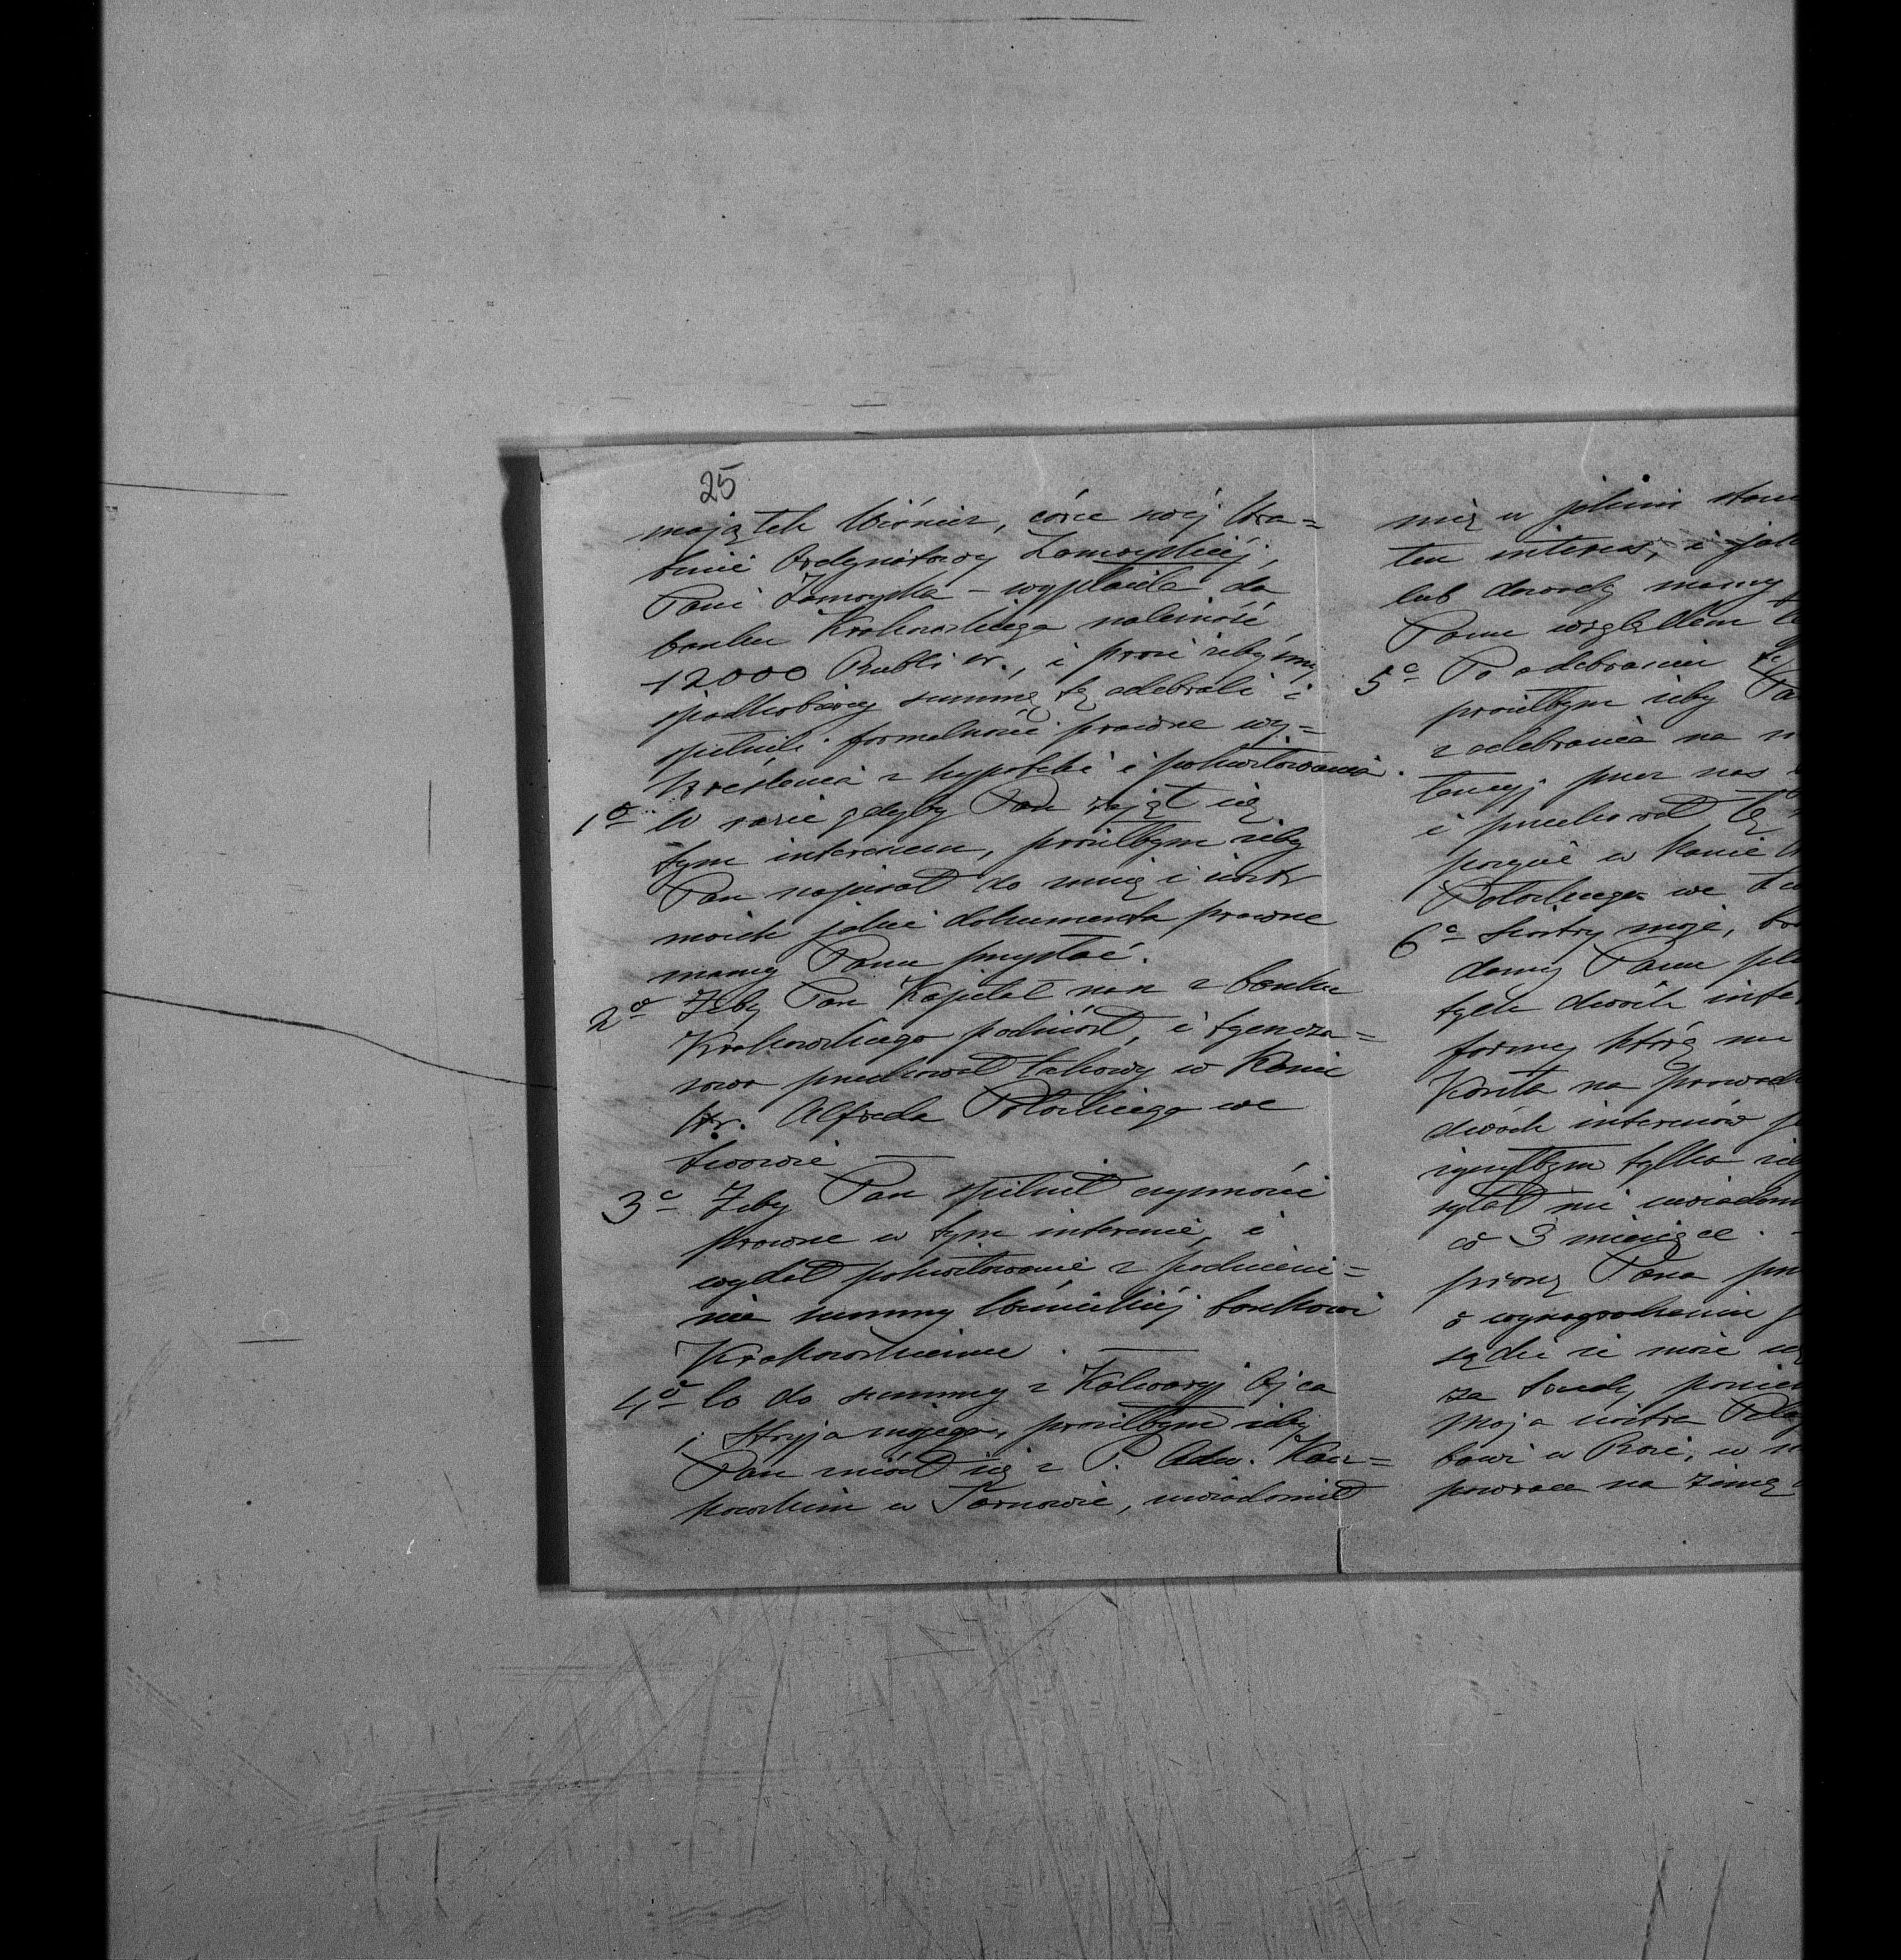 25
majątek Wiśnicz, córce swéj hra=
binie Ordynatowy Zamoyskiéj,
Pani Zamoyska – wypłaciła do
banku Krakowskiego należność
12000 Rubli sr., i prosi żebyśmy
spadkobiercy summę tę odebrali i
spełnili formalności prawne wy=
kreślenia z hypoteki i pokwitowania.
1o W razie gdyby Pan zajął się
tym interesem, prosiłbym żeby
Pan napisał do mnię i sióstr
moich jakie dokumenta prawne
mamy Panu przysłać.
2o Żeby Pan Kapitał nasz z banku
Krakowskiego podniósł, i tymcza=
sowo przechował takowy w Kasie
Hr. Alfreda Potockiego we
Lwowie —
3o Żeby Pan spełnił czynności
prawne w tym interesie, i
wydał pokwitowanie z podniesie=
nia summy Wiśnickiéj bankowi
Krakowskiemu. —
4o Co do summy z Kalwaryj Ojca
i Stryja mojego, prosiłbym żeby
Pan zniósł się z P. Adw. Kar=
powskim w Tarnowie, uwiadomił
mię w jakim stan
ten interes, i jak
lub dowody mamy
Panu względem
5o Po odebraniu
prosiłbym żeby Pa
z odebrania na
tensyj przez nas
i przechował tę
życzyć w kasie
Potockiego we
6o Siostry moje,
damy Panu
tych dwóch inte
formy którą
Koszta na prowad
dwóch interesów
życzyłbym tylko
syłał mi uwiadom
co 3 miesiące. –
proszę Pana
o wynagrodzenie
sądzi że może
za trudy, poniew
Moja siostra
bawi w Rosi, w
powraca na zimę